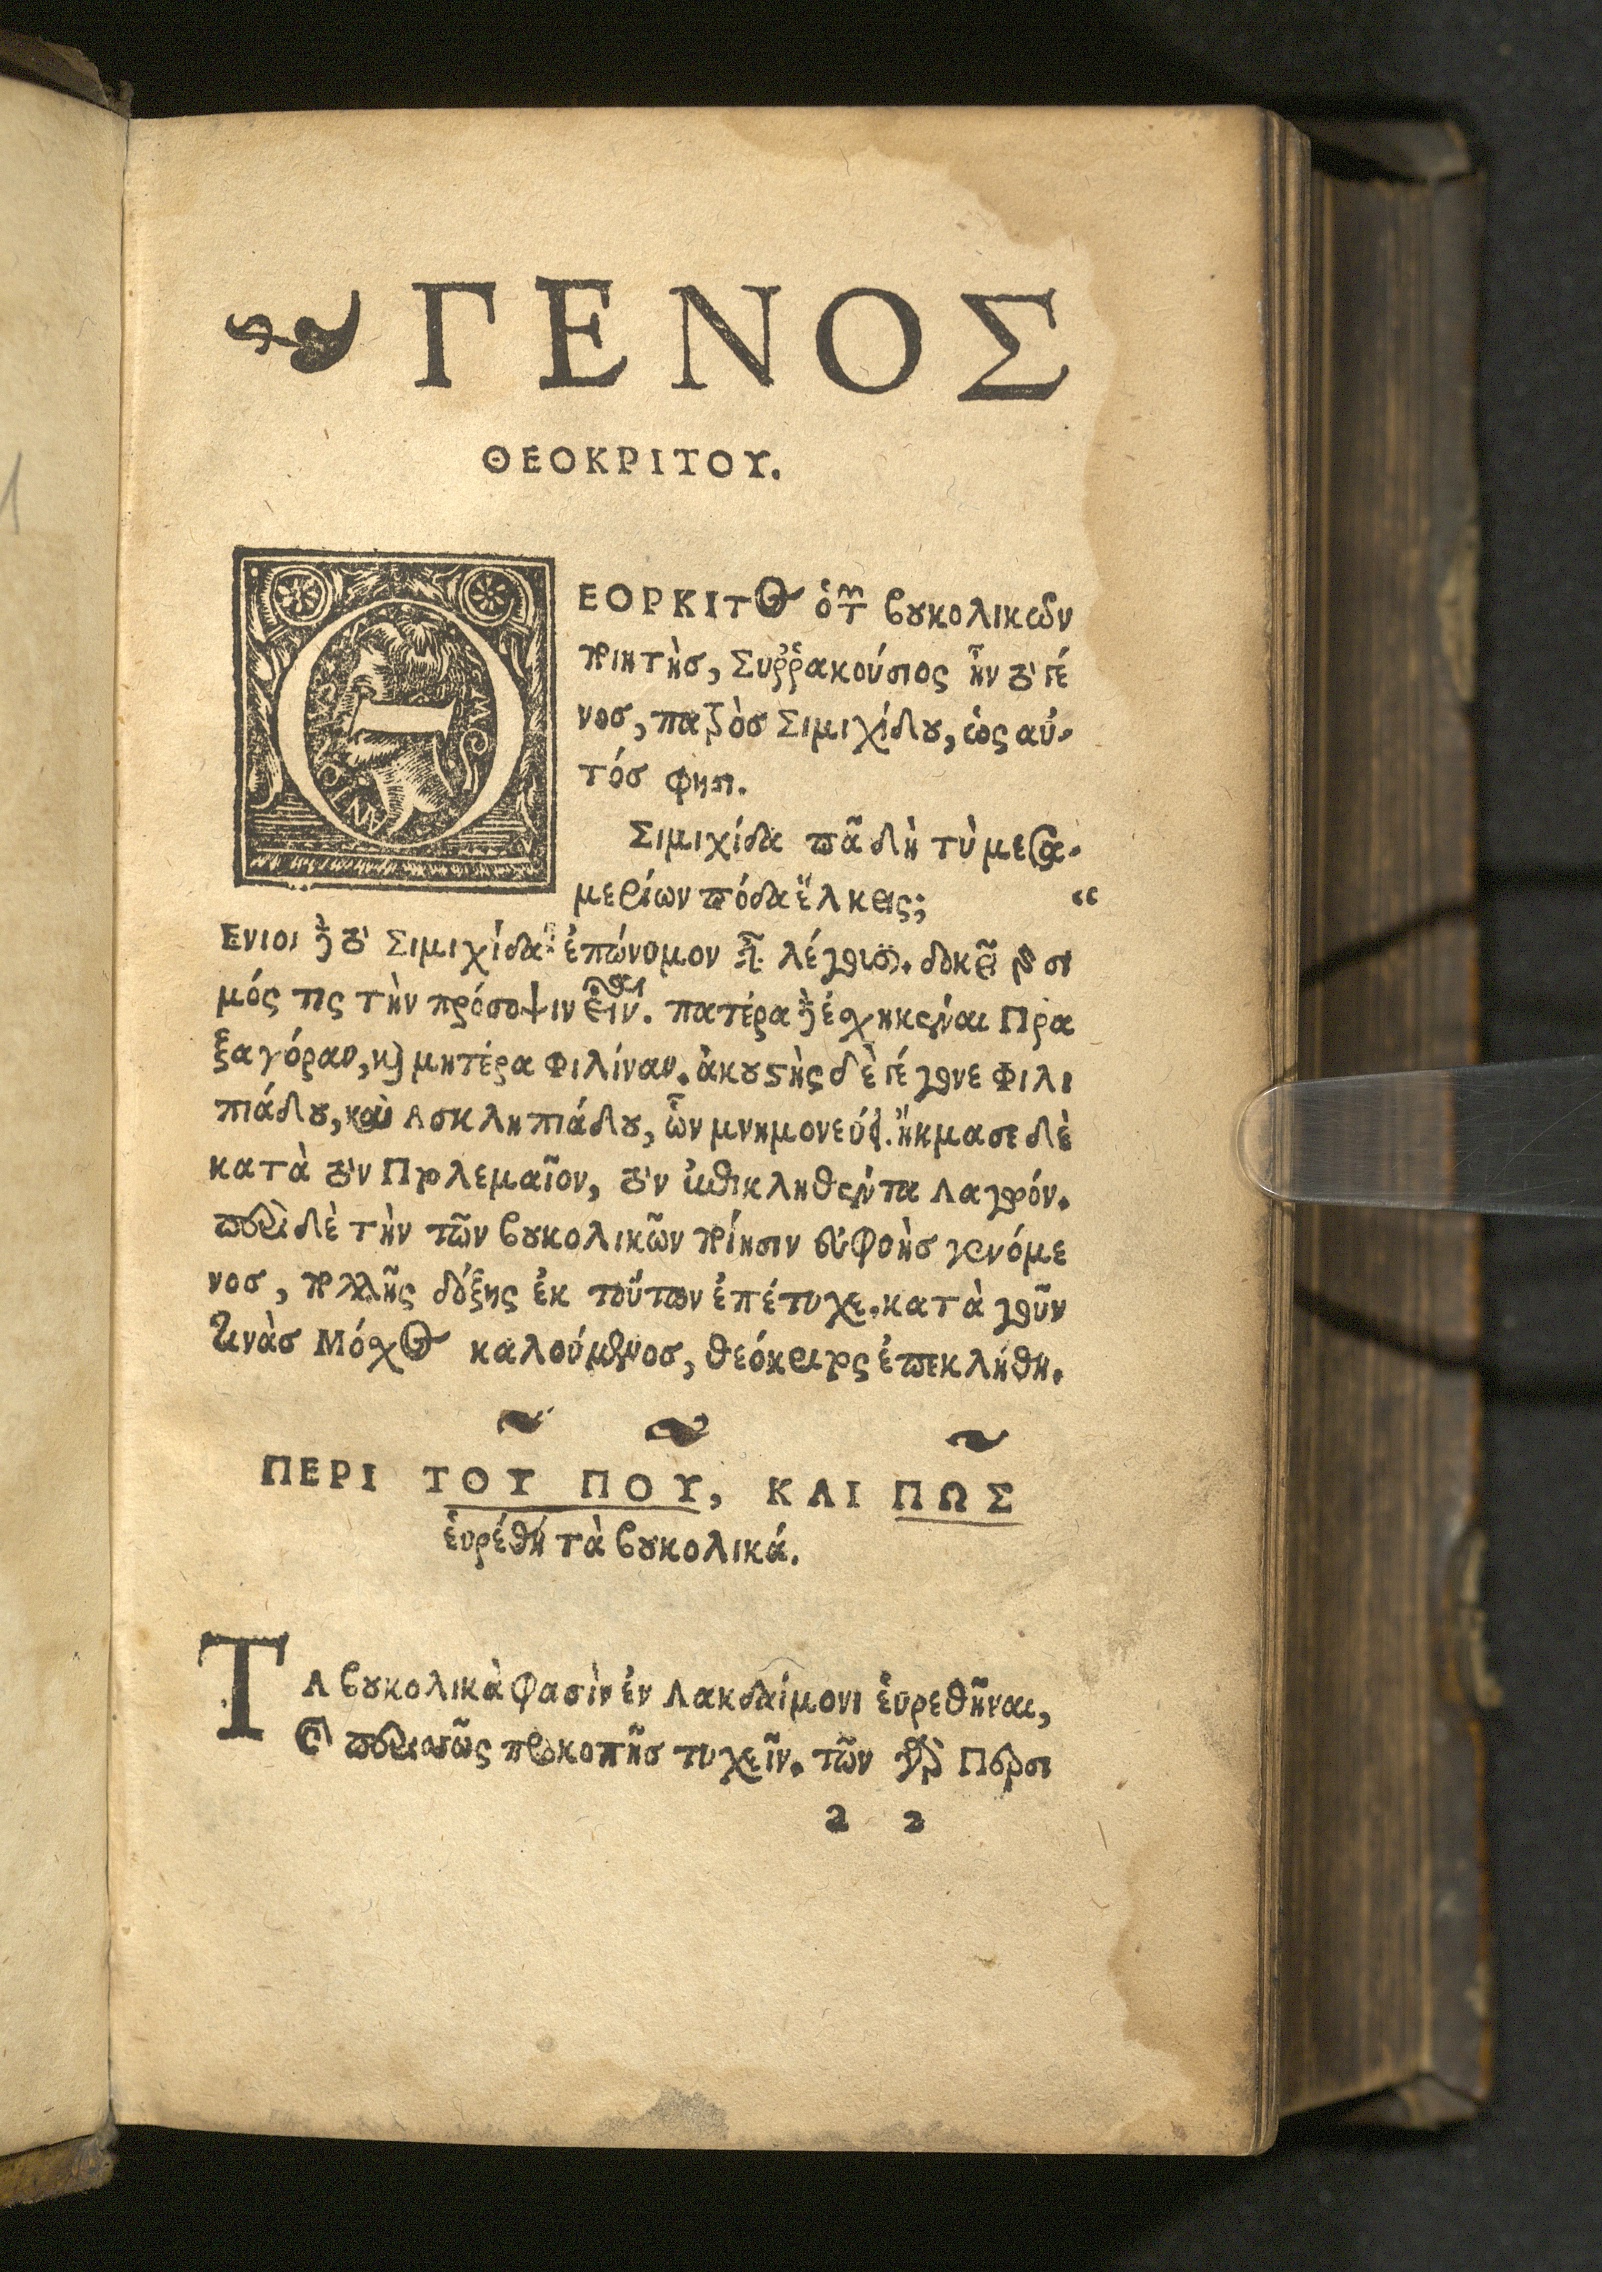 ΓΕΝΟΣ
ΘΕΟΚΡΙΤΟΥ.
ΘΕΟΡΚΙΤος ὁ τῶν βουκολικῶν
ποιητὴς, Συῤῥακούσιος ἦν τὸ γέ
νος, πατρὸς Σιμιχίδου, ὡς αὐ-
τός φησι.
Σιμιχίδα πᾶ δὴ τὺ μεσα-
μερίων πόδα ἕλκεις; “
Ενιοι δὲ τὸ Σιμιχίδα ἐπώνυμον εἶναι λέγουσι. δοκεῖ γὰρ σι
μός τις τὴν πρόσοψιν εἶναι. πατέρα δὲ ἐσχηκέναι Πρα
ξαγόραν, καὶ μητέρα Φιλίναν. ἀκουστὴς δὲ γέγονε Φιλι
πιάδου, καὶ Ασκληπιάδου, ὧν μνημονεύει. ἤκμασε δὲ
κατὰ τὸν Πτολεμαῖον, τὸν ἐπικληθέντα Λαγωόν.
περὶ δὲ τὴν τῶν βουκολικῶν ποίησιν εὐφυὴς γενόμε
νος, πολλῆς δόξης ἐκ τούτων ἐπέτυχε. κατὰ γοῦν
τινὰς Μόσχος καλούμενος, θεόκριτος ἐπεκλήθη.
ΠΕΡΙ ΤΟΥ ΠΟΥ, ΚΑΙ ΠΩΣ
ἑυρέθη τὰ βουκολικά.
ΤΑ βουκολικὰ φασὶν ἐν Λακεδαίμονι ἑυρεθῆναι,
καὶ περισσῶς προκοπῆς τυχεῖν. τῶν γὰρ Περσι
a 2